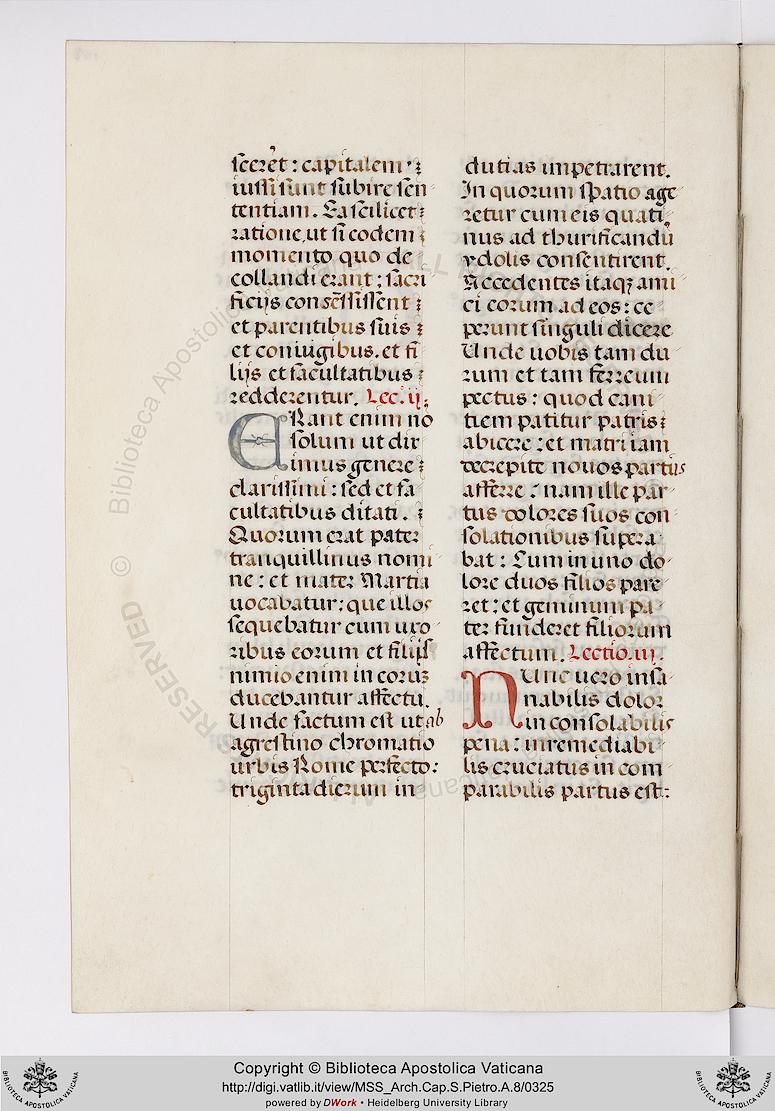 scerēt : capitalem
iussi sunt subire sen
tentiam. Ea scilicet
ratione, ut si eodem
momento quo de
collandi erant : sacri
ficijs consēssissent
et parentibus suis
et coniugibus. et fi
lijs et facultatibus
redderentur. Lec. ij.
ERant enim nō
solum ut dix
imus genere
clarissimi : sed et fa
cultatibus ditati.
Quorum erat pater
tranquillinus nomi
ne : et mater Martia
uocabatur : que illos
sequebatur cum uxo
ribus eorum et filijs
nimio enim in eorūz
ducebantur affectu.
Unde factum est ut ab
agrestino chromatio
urbis Rome perfecto :
triginta dierum in
dutias impetrarent.
In quorum spatio age
retur cum eis quati
nus ad thurificandū
ydolis consentirent.
Accedentes itaqz ami
ci eorum ad eos : ce
perunt singuli dicere
Unde uobis tam du
rum et tam ferreum
pectus : quod cani
tiem patitur patris
abicere : et matri iam
decrepite nouos partus
afferre : nam ille par
tus dolores suos con
solationibus supera
bat : Cum in uno do
lore duos filios pare
ret : et geminum pa
ter funderet filiorum
affectum. Lectio. iij.
NUnc uero insa
nabilis dolor
inconsolabilis
pena : inremediabi
lis cruciatus in com
parabilis partus est :
© Biblioteca Apostolica
RESERVED
Copyright © Biblioteca Apostolica Vaticana
http://digi.vatlib.it/view/MSS_Arch.Cap.S.Pietro.A.8/0325
powered by DWork • Heidelberg University Library
BIBLIOTECA APOSTOLICA VATICANA
BIBLIOTECA APOSTOLICA VATICANA